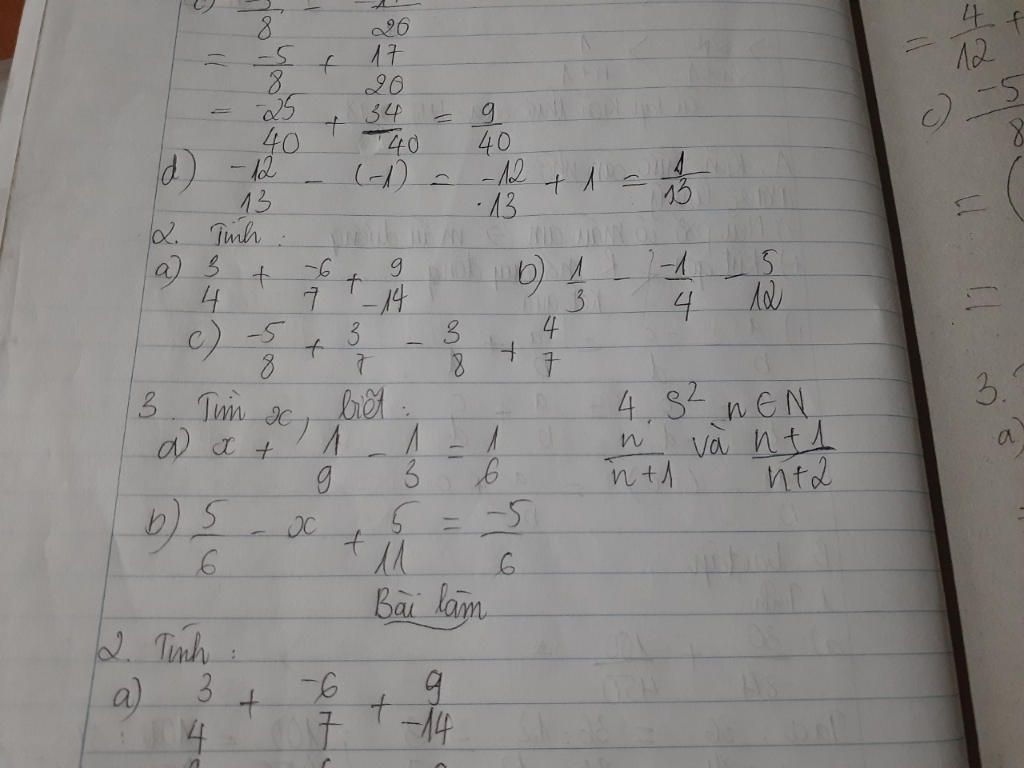 c) -5/8 - -17/20
= -5/8 + 17/20
= -25/40 + 34/40 = 9/40
d) -12/13 - (-1) = -12/13 + 1 = 1/13
2. Tính :
a) 3/4 + -6/7 + 9/-14 b) 1/3 - -1/4 - 5/12
c) -5/8 + 3/7 - 3/8 + 4/7
3. Tìm x, biết : 4. S² n ∈ N
a) x + 1/9 - 1/3 = 1/6 n/n+1 và n+1/n+2
b) 5/6 - x + 5/11 = -5/6
Bài làm
2. Tính :
a) 3/4 + -6/7 + 9/-14
= 4/12 +
c) -5/8
= (
=
3.
a)